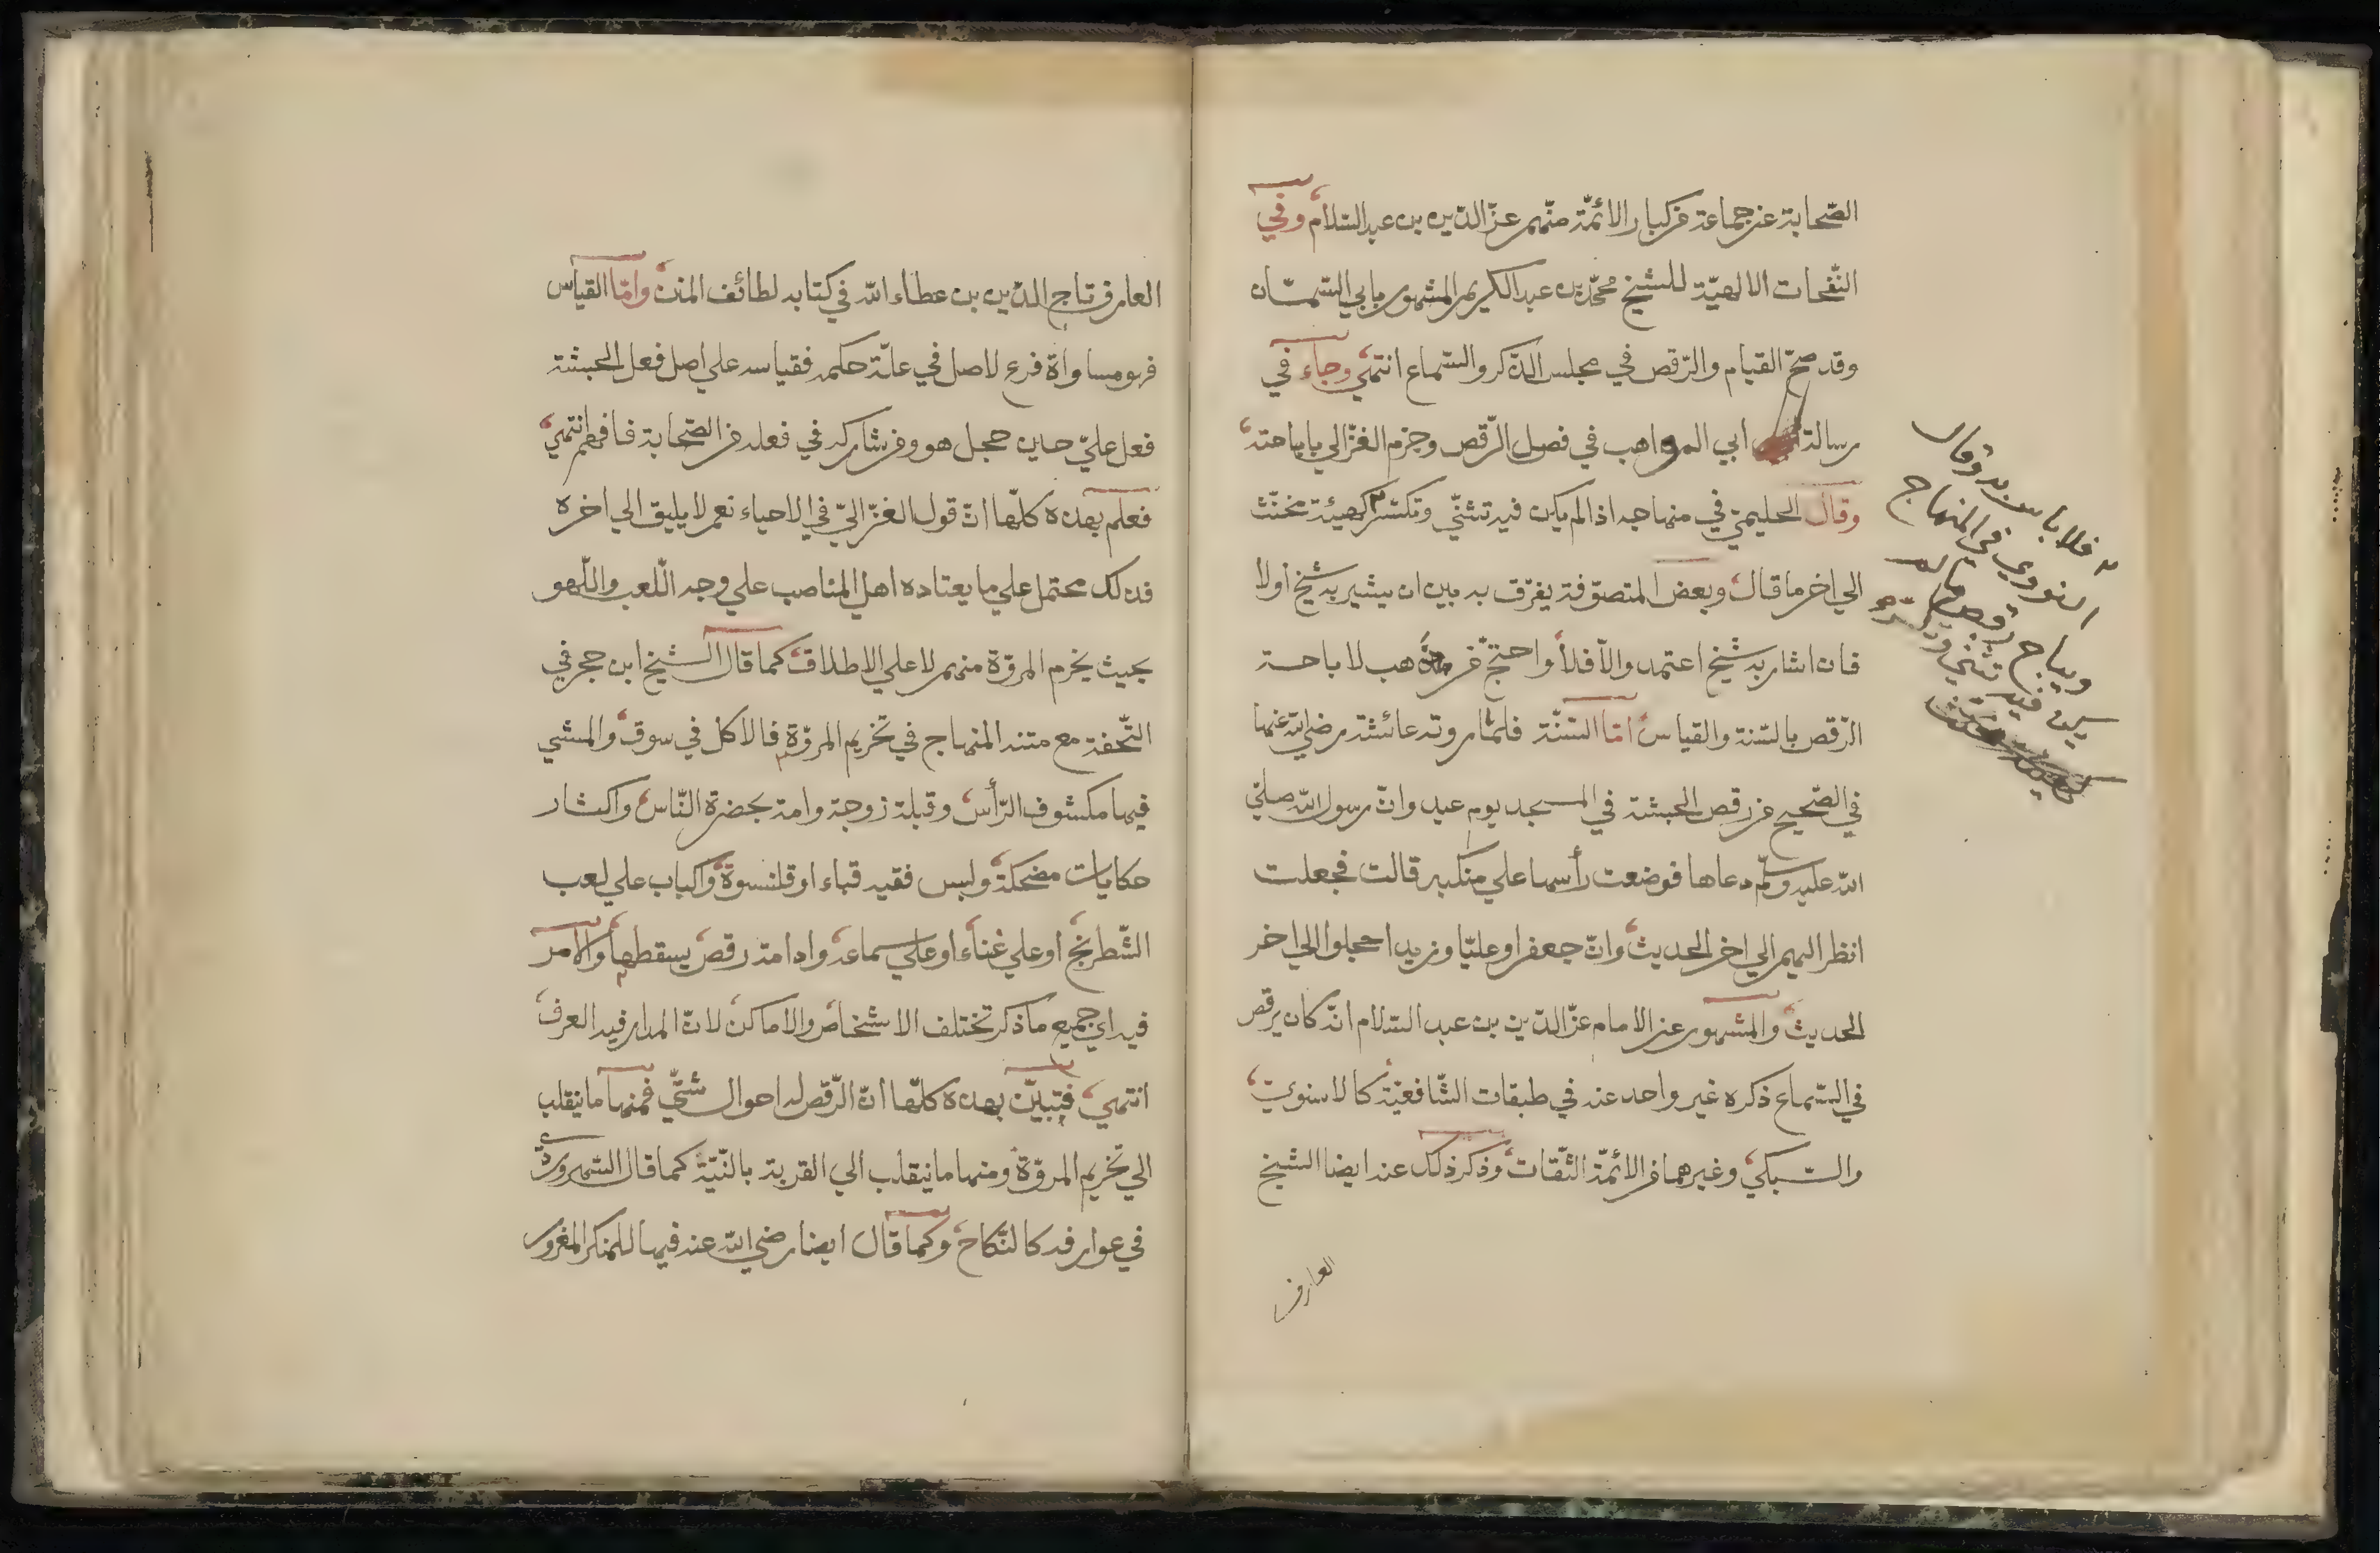 الصّحابة عن جماعة من كبار الائمّة منهم عزّ الدّين بن عبد السّلام وفي
النّفحات الالهيّة للشيخ محمّد بن عبد الكريم المشهور بابي السّمّان
وقد صحّ القيام والرّقص في مجلس الذّكر والسّماع انتهى وجاء في
رسالة ابي المواهب في فصل الرّقص وجزم الغزّالي باباحته
وقال الحليميّ في منهاجه اذا لم يكن فيه تثنّي وتكسّر كهيئة مخنّث
الي اخر ما قال وبعض المتصوّفة يفرّق به بين ان يشير به شيخ اولا
فان اشار به شيخ اعتمد والّا فلا واحتجّ من ذهب لاباحة
الرّقص بالسّنة والقياس امّا السّنّة فلما روته عائشة رضي الله عنها
في الصّحيح من رقص الحبشة في المسجد يوم عيد وانّ رسول الله صلّي
الله عليه وسلّم دعاها فوضعت رأسها علي منكبه قالت فجعلت
انظر اليهم الي اخر الحديث وانّ جعفرا وعليّا وزيدا حجلوا الي اخر
الحديث والمشهور عن الامام عزّ الدّين بن عبد السّلام انّه كان يرقص
في السّماع ذكره غير واحد عنه في طبقات الشّافعيّة كالاسنويّ
والسّبكيّ وغيرهما من الائمّة الثّقات وذكر ذلك عنه ايضا الشيخ
العارف
فلا باس به وقال
النووي في المنهاج
ويباح رقص مالم
يكن فيه تثني
العارف تاج الدّين بن عطاء الله في كتابه لطائف المنن وامّا القياس
فهو مساواة فرع لاصل في علّة حكمه فقياسه علي اصل فعل الحبشة
فعل عليّ حين حجل هو ومن شاركه في فعله من الصّحابة فافهم انتهى
فعلم بهذه كلّها انّ قول الغزّاليّ في الاحياء نعم لا يليق الي اخره
فذلك محتمل علي ما يعتاده اهل المناصب علي وجه اللّعب واللّهو
بحيث يخرم المروّة منهم لا علي الاطلاق كما قال الشيخ ابن حجر في
التّحفة مع متنه المنهاج في تخريم المروّة فالاكل في سوق والمشي
فيها مكشوف الرّأس وقبلة زوجة وامة بحضرة النّاس واكثار
حكايات مضحكة ولبس فقيه قباء او قلنسوة واكباب علي لعب
الشّطرنج او علي غناء او علي سماعه وادامة رقص يسقطها والامر
فيه اي جميع ما ذكر تختلف الاشخاص والاماكن لانّ المدار فيه العرف
انتهى فتبيّن بهذه كلّها انّ الرّقص له احوال شتّي فمنها ما ينقلب
الي تخريم المروّة ومنها ما ينقلب الي القربة بالنّيّة كما قال السّهرورديّ
في عوارفه كالنّكاح وكما قال ايضا رضي الله عنه فيها للمنكر المغرور